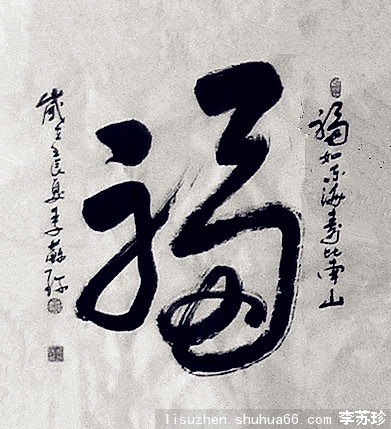 福如东海壽比南山
福
歲辰夏李蘇珍
lisuzhen.shuhua66.com 李苏珍